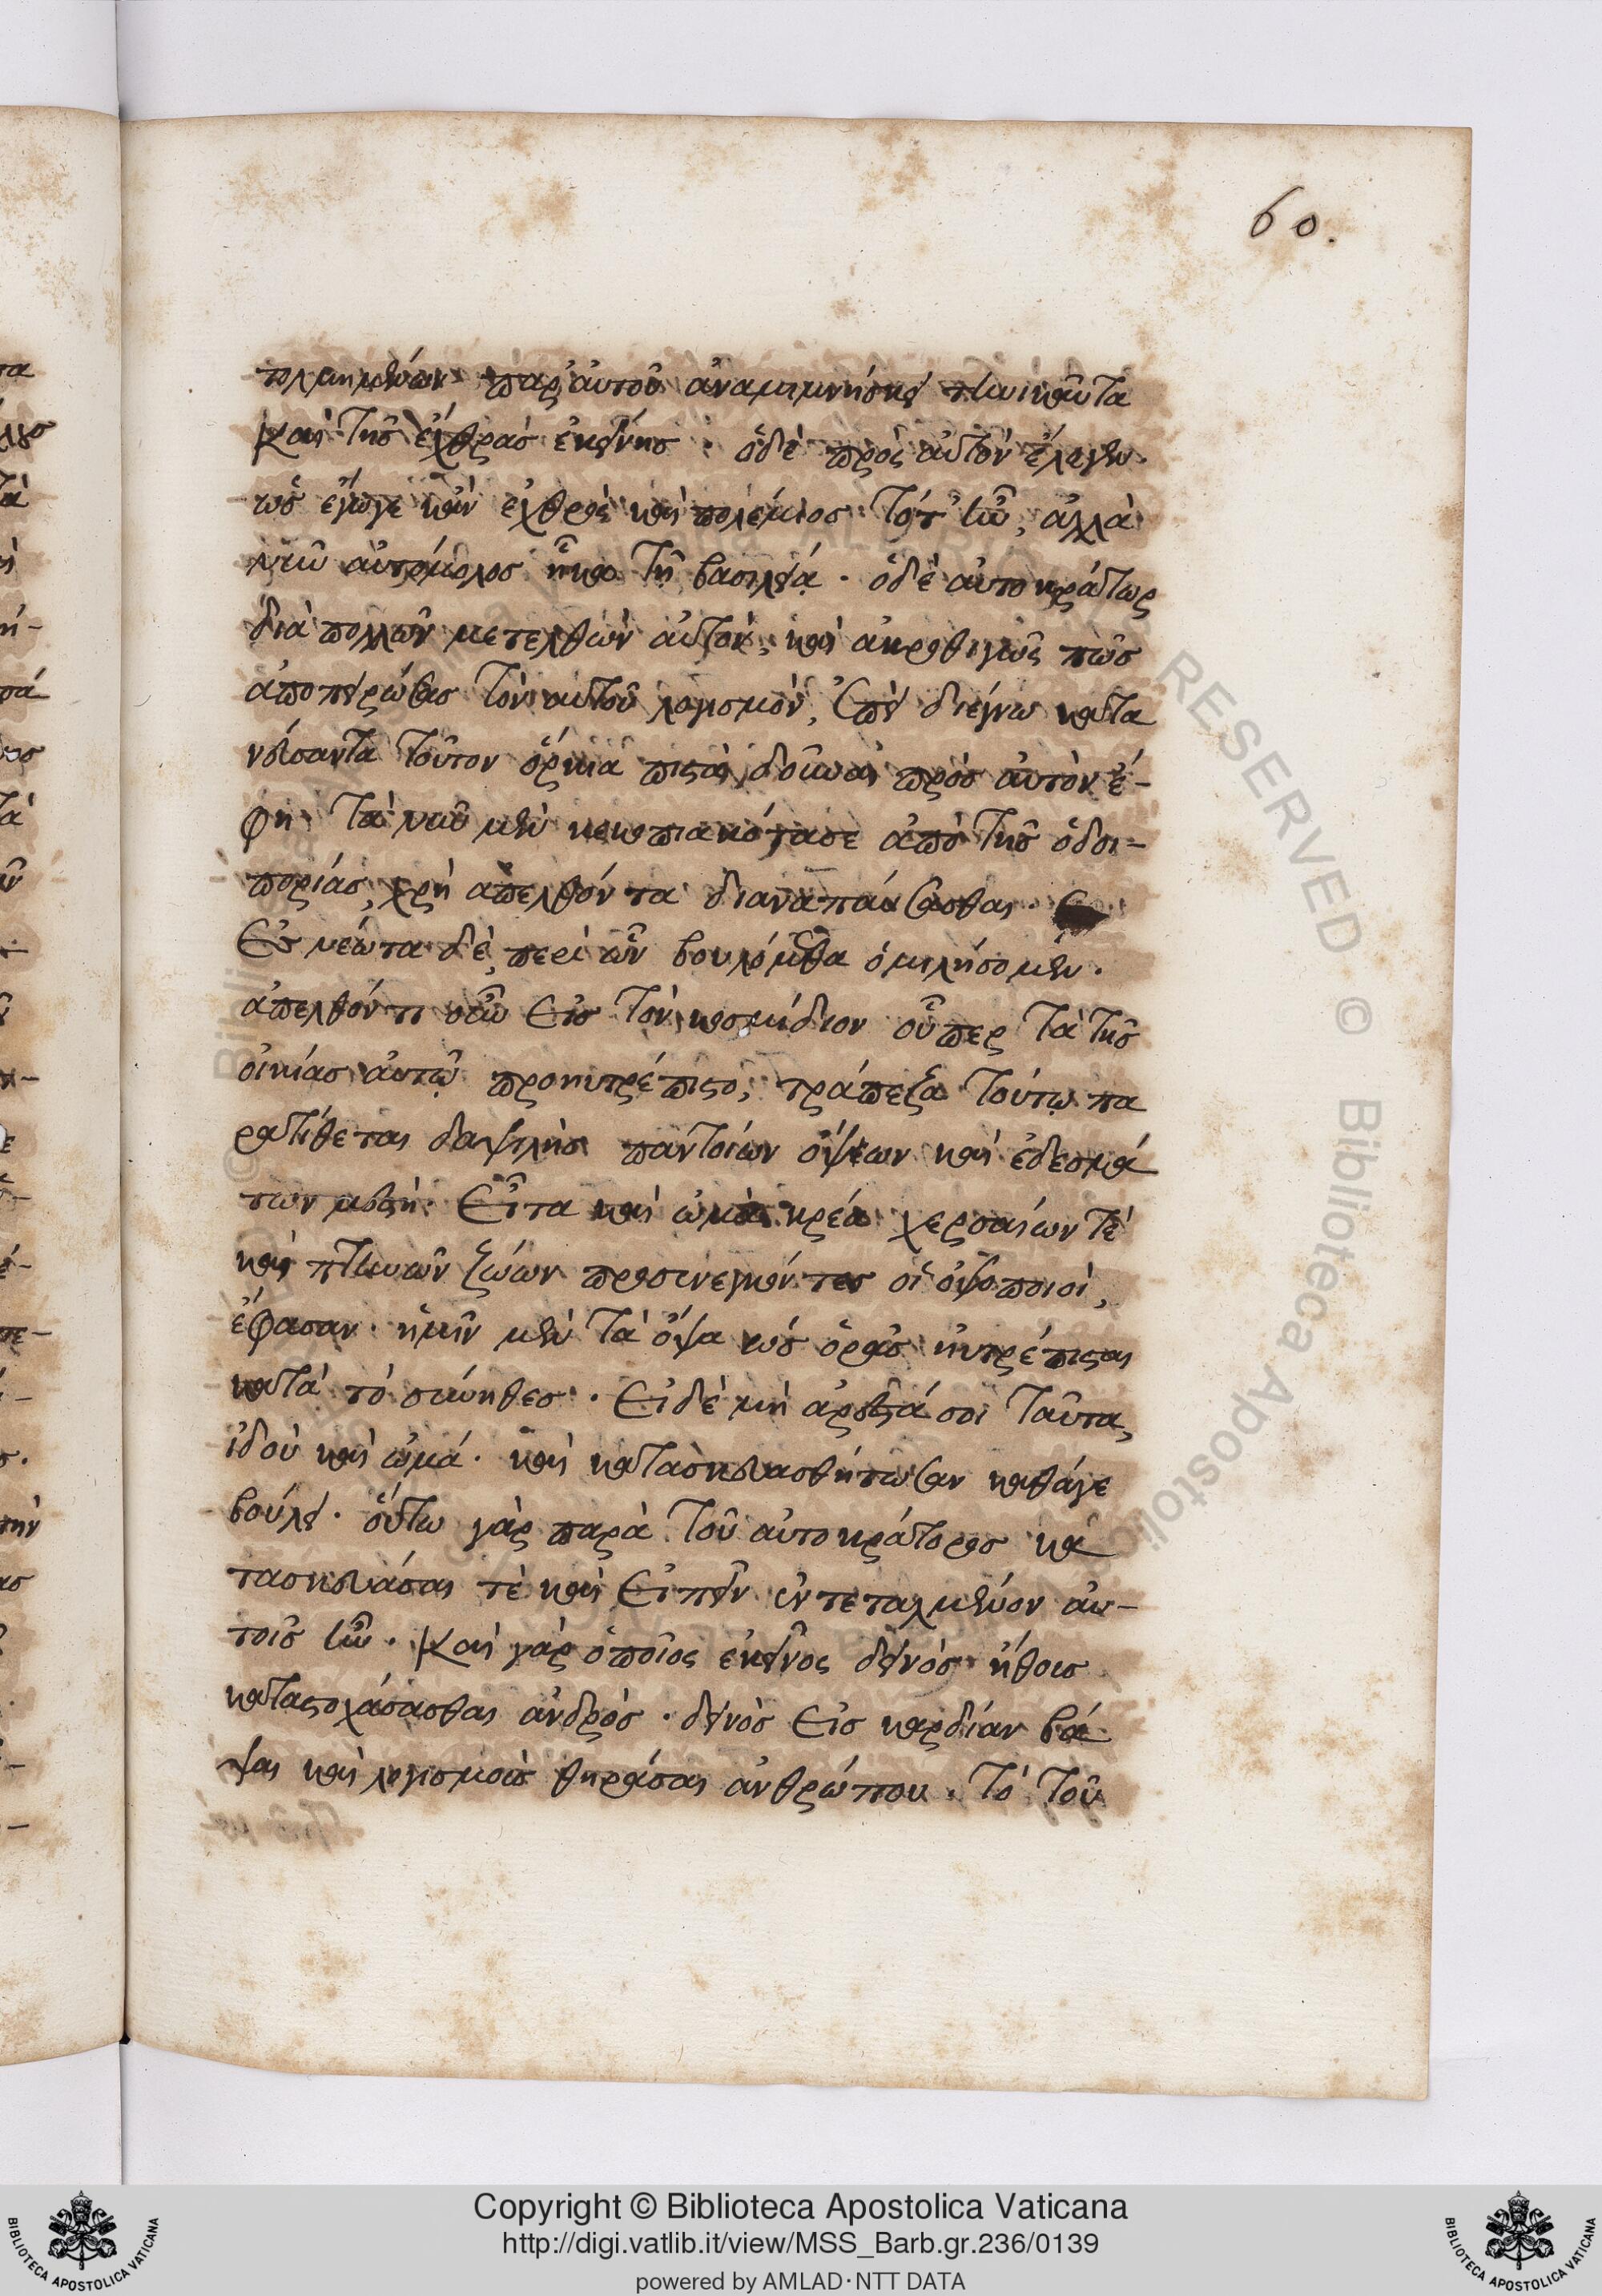 60.
τολμημένων παρ' αὐτοῦ ἀναμιμνήσκει τηνικαῦτα
καὶ τῆς ἔχθρας ἐκείνης. ὁ δὲ πρὸς αὐτὸν ἔλεγεν.
ὡς ἔγωγε κἂν ἐχθρὸς καὶ πολέμιος τότ' ἦν, ἀλλὰ
νῦν αὐτόμολος ἥκω τῇ βασιλείᾳ. ὁ δὲ αὐτοκράτωρ
διὰ πολλῶν μετελθὼν αὐτὸν, καὶ ἀκροθιγῶς πως
ἀποπειρώσας τὸν αὐτοῦ λογισμόν, ἐπεὶ διέγνω κατα
νεύσαντα τοῦτον ὅρκια πιστὰ δοῦναι πρὸς αὐτὸν ἔ-
φη. τὰ νῦν μὲν κεκοπιακότα σε ἀπὸ τῆς ὁδοι-
πορίας, χρὴ ἀπελθόντα διαναπαύσασθαι.
Ἐς νέωτα δὲ, περὶ ὧν βουλόμεθα ὁμιλήσομεν.
ἀπελθόντι οὖν εἰς τὸν κοσμίδιον οὗπερ τὰ τῆς
οἰκίας αὐτῷ προηυτρέπιστο, τράπεζα τούτῳ πα
ρατίθεται δαψιλὴς παντοίων ὄψεων καὶ ἐδεσμά
των μεστή. Εἶτα καὶ ὠμὰ κρέα χερσαίων τὲ
καὶ πτηνῶν ζώων προσενεγκόντες οἱ ὀψοποιοί,
ἔφασαν. ἡμῖν μὲν τὰ ὄψα ὡς ὁρᾷς ηὐτρέπισται
κατὰ τὸ σύνηθες. Εἰ δὲ μὴ ἀρεστά σοι ταῦτα,
ἰδοὺ καὶ ὠμά. καὶ κατασκευασθήτωσαν καθάγε
βούλει. οὕτω γὰρ παρὰ τοῦ αὐτοκράτορος κα
τασκευάσαι τὲ καὶ εἰπεῖν ἐντεταλμένον αὐ-
τοῖς ἦν. Καὶ γὰρ ὁποῖος ἐκεῖνος δεινὸς ἤθους
καταστοχάσασθαι ἀνδρός. δεινὸς εἰς καρδίαν βά
ψαι καὶ λογισμοὺς θηράσαι ἀνθρώπου. τὸ τοῦ
Copyright © Biblioteca Apostolica Vaticana
http://digi.vatlib.it/view/MSS_Barb.gr.236/0139
powered by AMLAD·NTT DATA